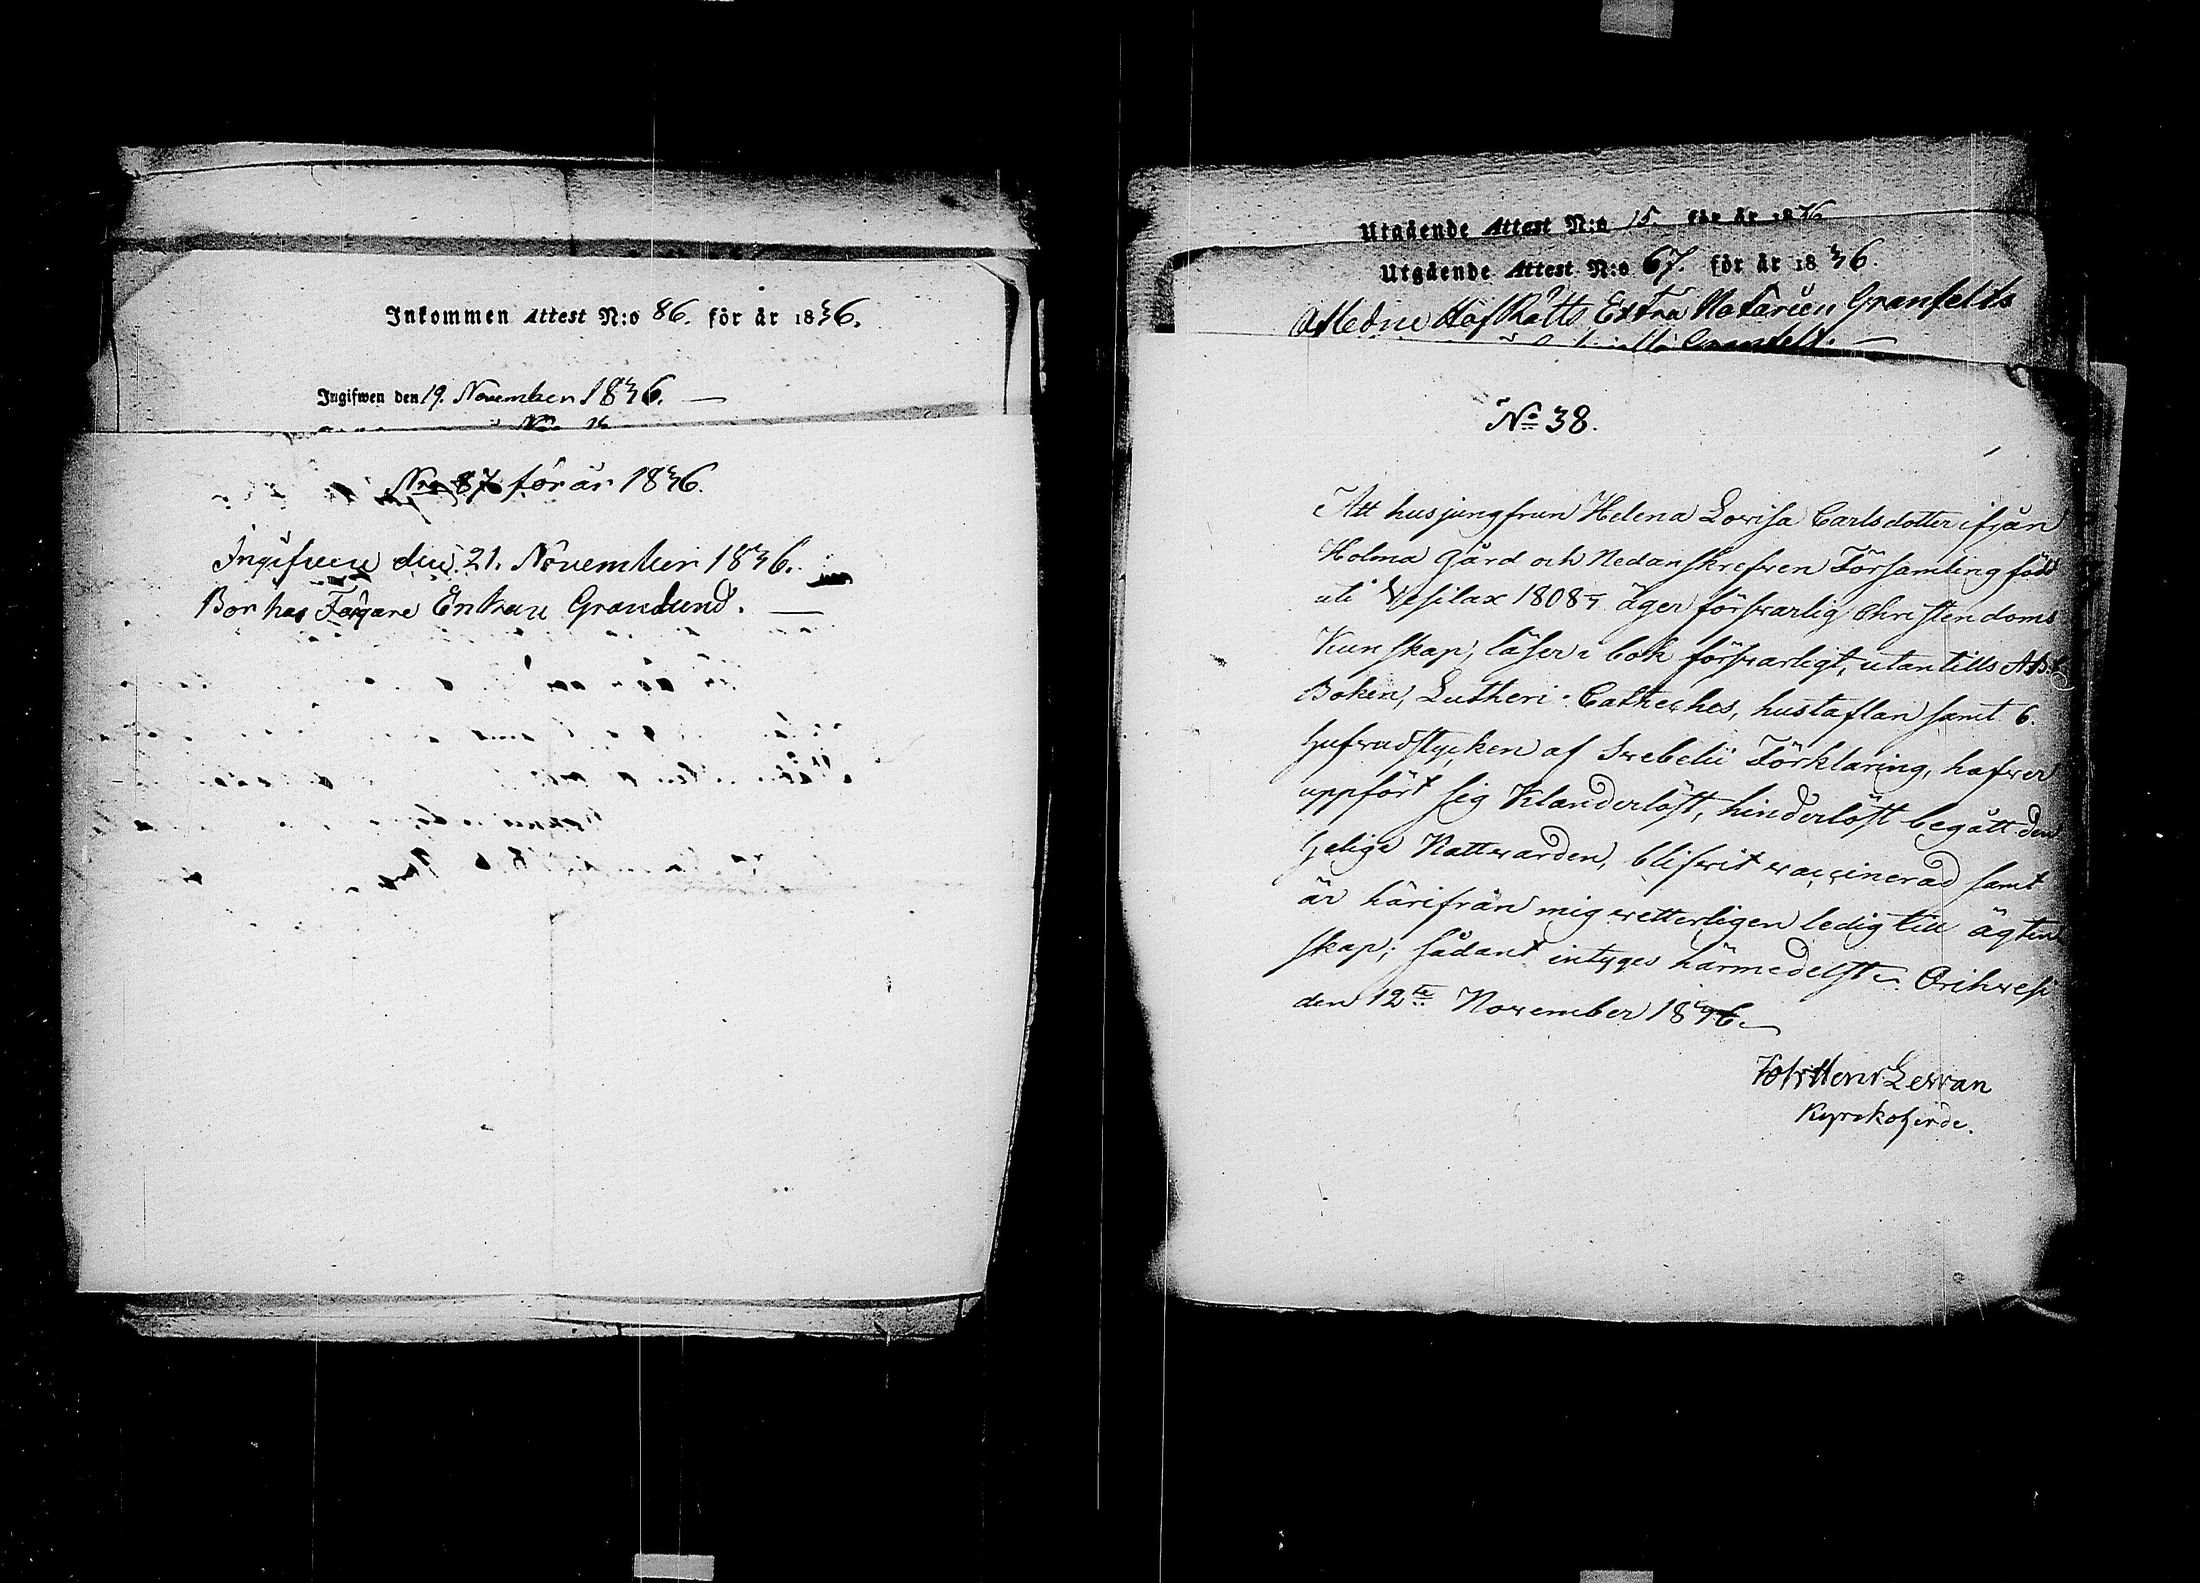 Inkommen Attest N:o 86. för år 1836.
Ingifwen den 19. November 1836. —
Nro 87 för år 1836.
Ingifven den 21. November 1836.
Bor hos Färgare Enkan Granlund. —
Utgående Attest N:o 15. för år 1836
Utgående Attest N:o 67. för år 1836.
Afledne HofRätts Extra Notarien Granfelts
Granfelt. —
No 38.
Att husjungfrun Helena Lovisa Carlsdotter ifrån
Holma gård och Nedanskrefven Församling född
uti Vesilax 1808 äger försvarlig Christendoms
Kunskap, läser i bok försvarligt, utantills Ab.c
Boken, Lutheri Catheches, hustaflan samt 6.
hufvudstycken af Svebelii Förklaring, hafver
uppfört sig Klanderlöst, hinderlöst begått den
helige Nattvarden, blifvit vaccinerad samt
är härifrån mig vetterligen ledig till ägten
skap; sådant intyges härmedelst. Orihvesi
den 12te November 1836.
Henr Levan
Kyrckoherde.